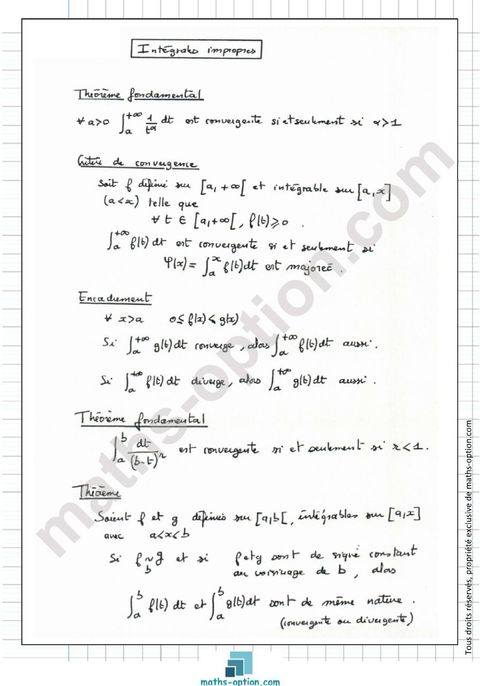 Intégrales impropres
Théorème fondamental
∀ a>0 ∫_a^{+∞} 1/t^α dt est convergente si et seulement si α>1
Critère de convergence
Soit f définie sur [a,+∞[ et intégrable sur [a,x]
(a<x) telle que
∀ t ∈ [a,+∞[, f(t)≥0.
∫_a^{+∞} f(t)dt est convergente si et seulement si
φ(x) = ∫_a^x f(t)dt est majorée.
Encadrement
∀ x>a 0≤f(x)≤g(x)
Si ∫_a^{+∞} g(t)dt converge, alors ∫_a^{+∞} f(t)dt aussi.
Si ∫_a^{+∞} f(t)dt diverge, alors ∫_a^{+∞} g(t)dt aussi.
Théorème fondamental
∫_a^b dt/(b-t)^r est convergente si et seulement si r<1.
Théorème
Soient f et g définies sur [a,b[, intégrables sur [a,x]
avec a<x<b
Si f ~_b g et si f et g sont de signe constant
au voisinage de b, alors
∫_a^b f(t)dt et ∫_a^b g(t)dt sont de même nature.
(convergente ou divergente)
maths-option.com
Tous droits réservés, propriété exclusive de maths-option.com
maths-option.com